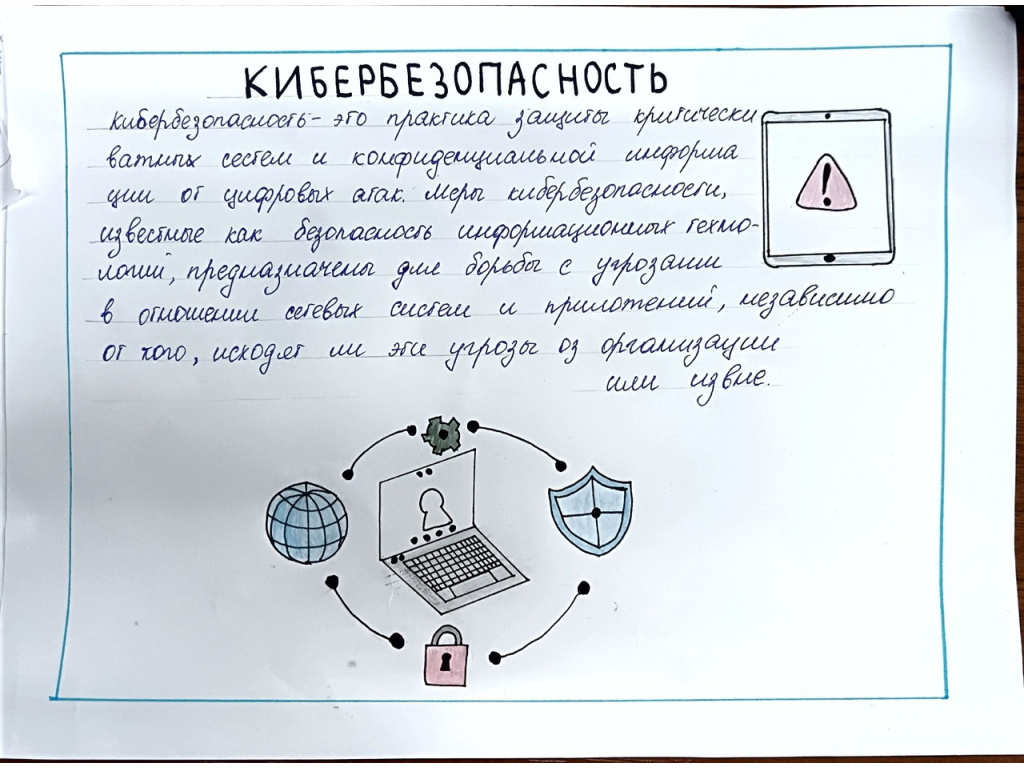 КИБЕРБЕЗОПАСНОСТЬ
кибербезопасность - это практика защиты критически
важных сестем и конфиденциальной информа
ции от цифровых атак. Меры кибербезопасности,
известные как безопасность информационных техно-
логий, предназначены для борьбы с угрозами
в отношении сетевых систем и приложений, независимо
от того, исходят ли эти угрозы из организации
или извне.